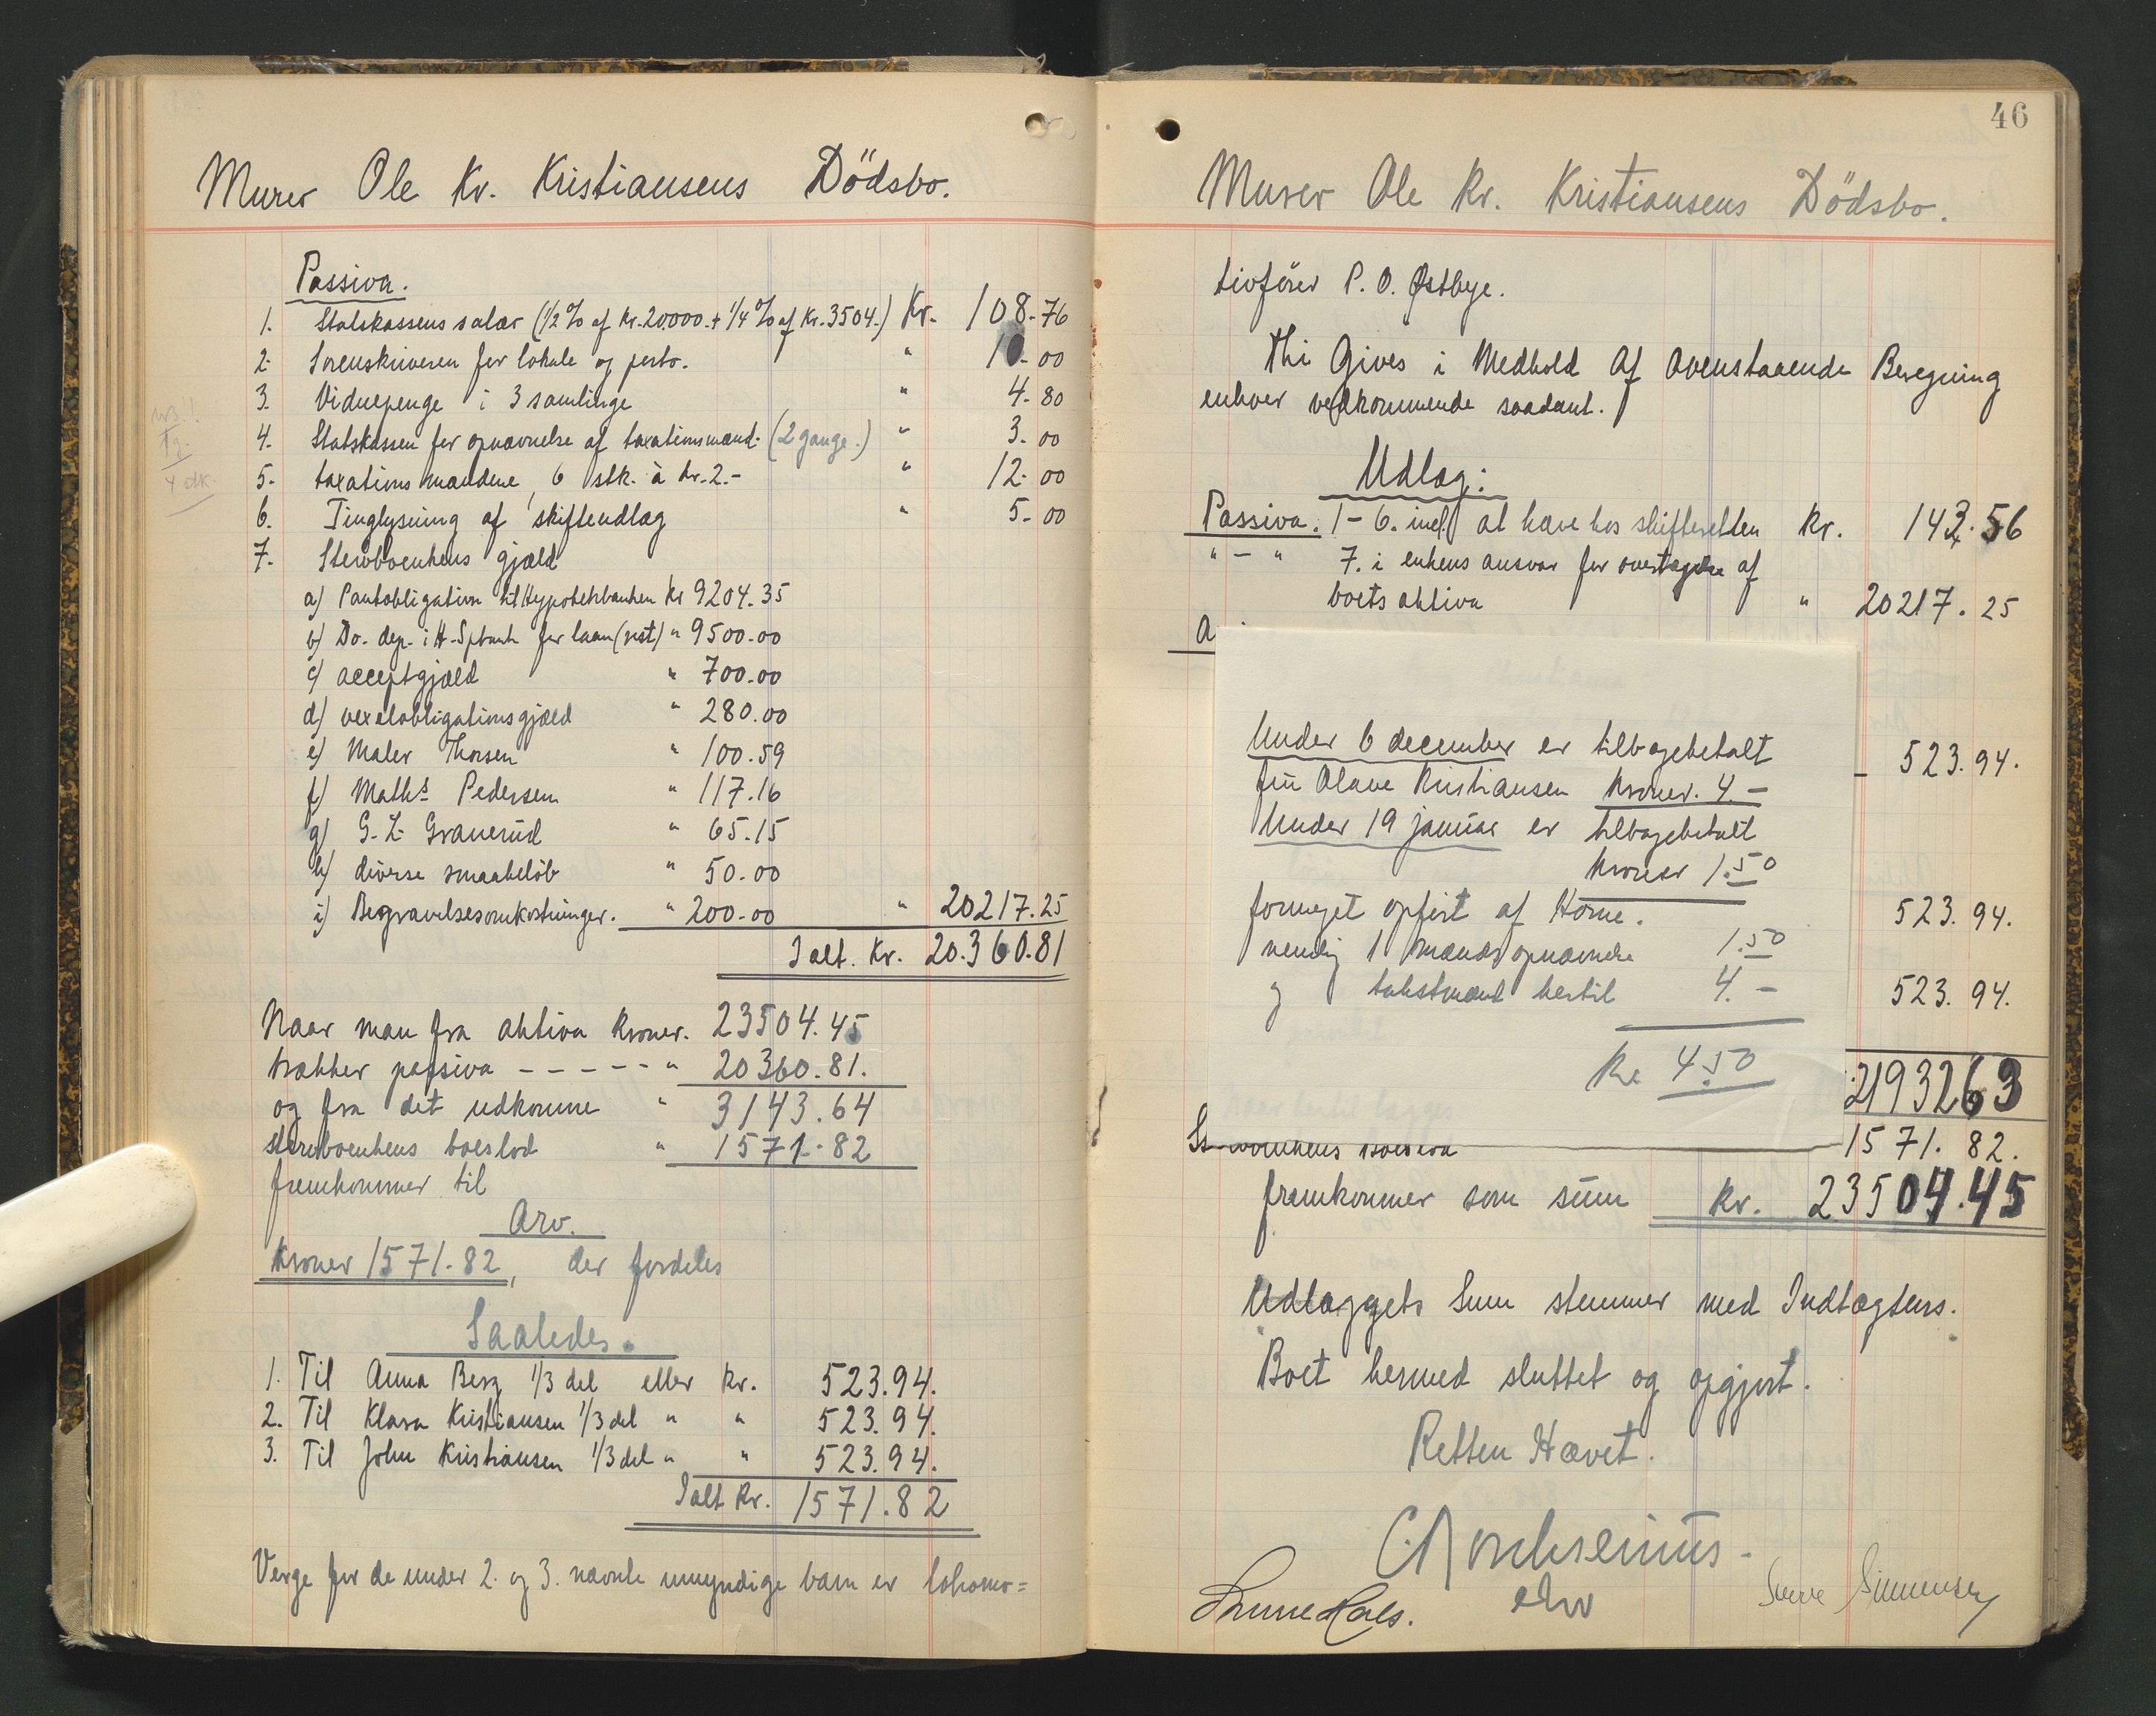 Murer Ole Kr. Kristiansens Dödsbo.
Passiva.
1. Statskassens salær (1/2 % af Kr. 20.000. + 1/4 % af Kr. 3504.) Kr. 108.76
2. Sorenskriveren for lokale og porto. " 10.00
3. Vidnepenge i 3 samlinge " 4.80
4. Statskassen for opnævnelse af taxationsmænd. (2 gange.) " 3.00
5. taxationsmændene, 6 stk. à kr. 2.- " 12.00
6. Tinglysning af skifteudlæg " 5.00
7. Stervboenkens gjæld
a) Pantobligation til Hypotekbanken Kr 9204.35
b) Do. dep. i H. Spbank for laan (rest) " 9500.00
c) acceptgjæld " 700.00
d) vexelobligationsgjæld " 280.00
e) Maler Thorsen " 100.59
f) Maths Pedersen " 117.16
g) G. L. Granerud " 65.15
h) diverse smaabeløb " 50.00
i) Begravelsesomkostninger. " 200.00 " 20217.25
Ialt. Kr. 20.360.81
Naar man fra aktiva Kroner. 23504.45
trækker passiva ----- " 20360.81.
og fra det udkomne " 3143.64
stervboenkens boeslod " 1571.82
fremkommer til
Arv.
Kroner 1571.82, der fordeles
Saaledes.
1. Til Anna Berg 1/3 del eller Kr. 523.94.
2. Til Klara Kristiansen 1/3 del " " 523.94.
3. Til John Kristiansen 1/3 del " " 523.94.
Ialt Kr. 1571.82
Verge for de under 2. og 3. nævnte umyndige barn er lokomo=
46
Murer Ole Kr. Kristiansens Dödsbo.
tivförer P. O. Østbye.
Thi Gives i Medhold Af Ovenstaaende Beregning
enhver vedkommende saadant.
Udlæg:
Passiva. 1-6. incl. at hæve hos skifteretten Kr. 143.56
" - " 7. i enkens ansvar for overtagelse af
boets aktiva " 20217.25
A
523.94.
Under 6 december er tilbagebetalt
fru Olave Kristiansen Kroner. 4.-
Under 19 januar er tilbagebetalt
Kroner 1.50
formeget opført af Horne.
523.94.
nemlig 1 mandsopnævnelse 1.50
og takstmænd hertil 4.-
523.94.
Kr 4.50
2193263
1571.82.
fremkommer som sum Kr. 23504.45
Udlæggets Sum stemmer med Indtægtens.
Boet hermed sluttet og opgjort.
Retten Hævet.